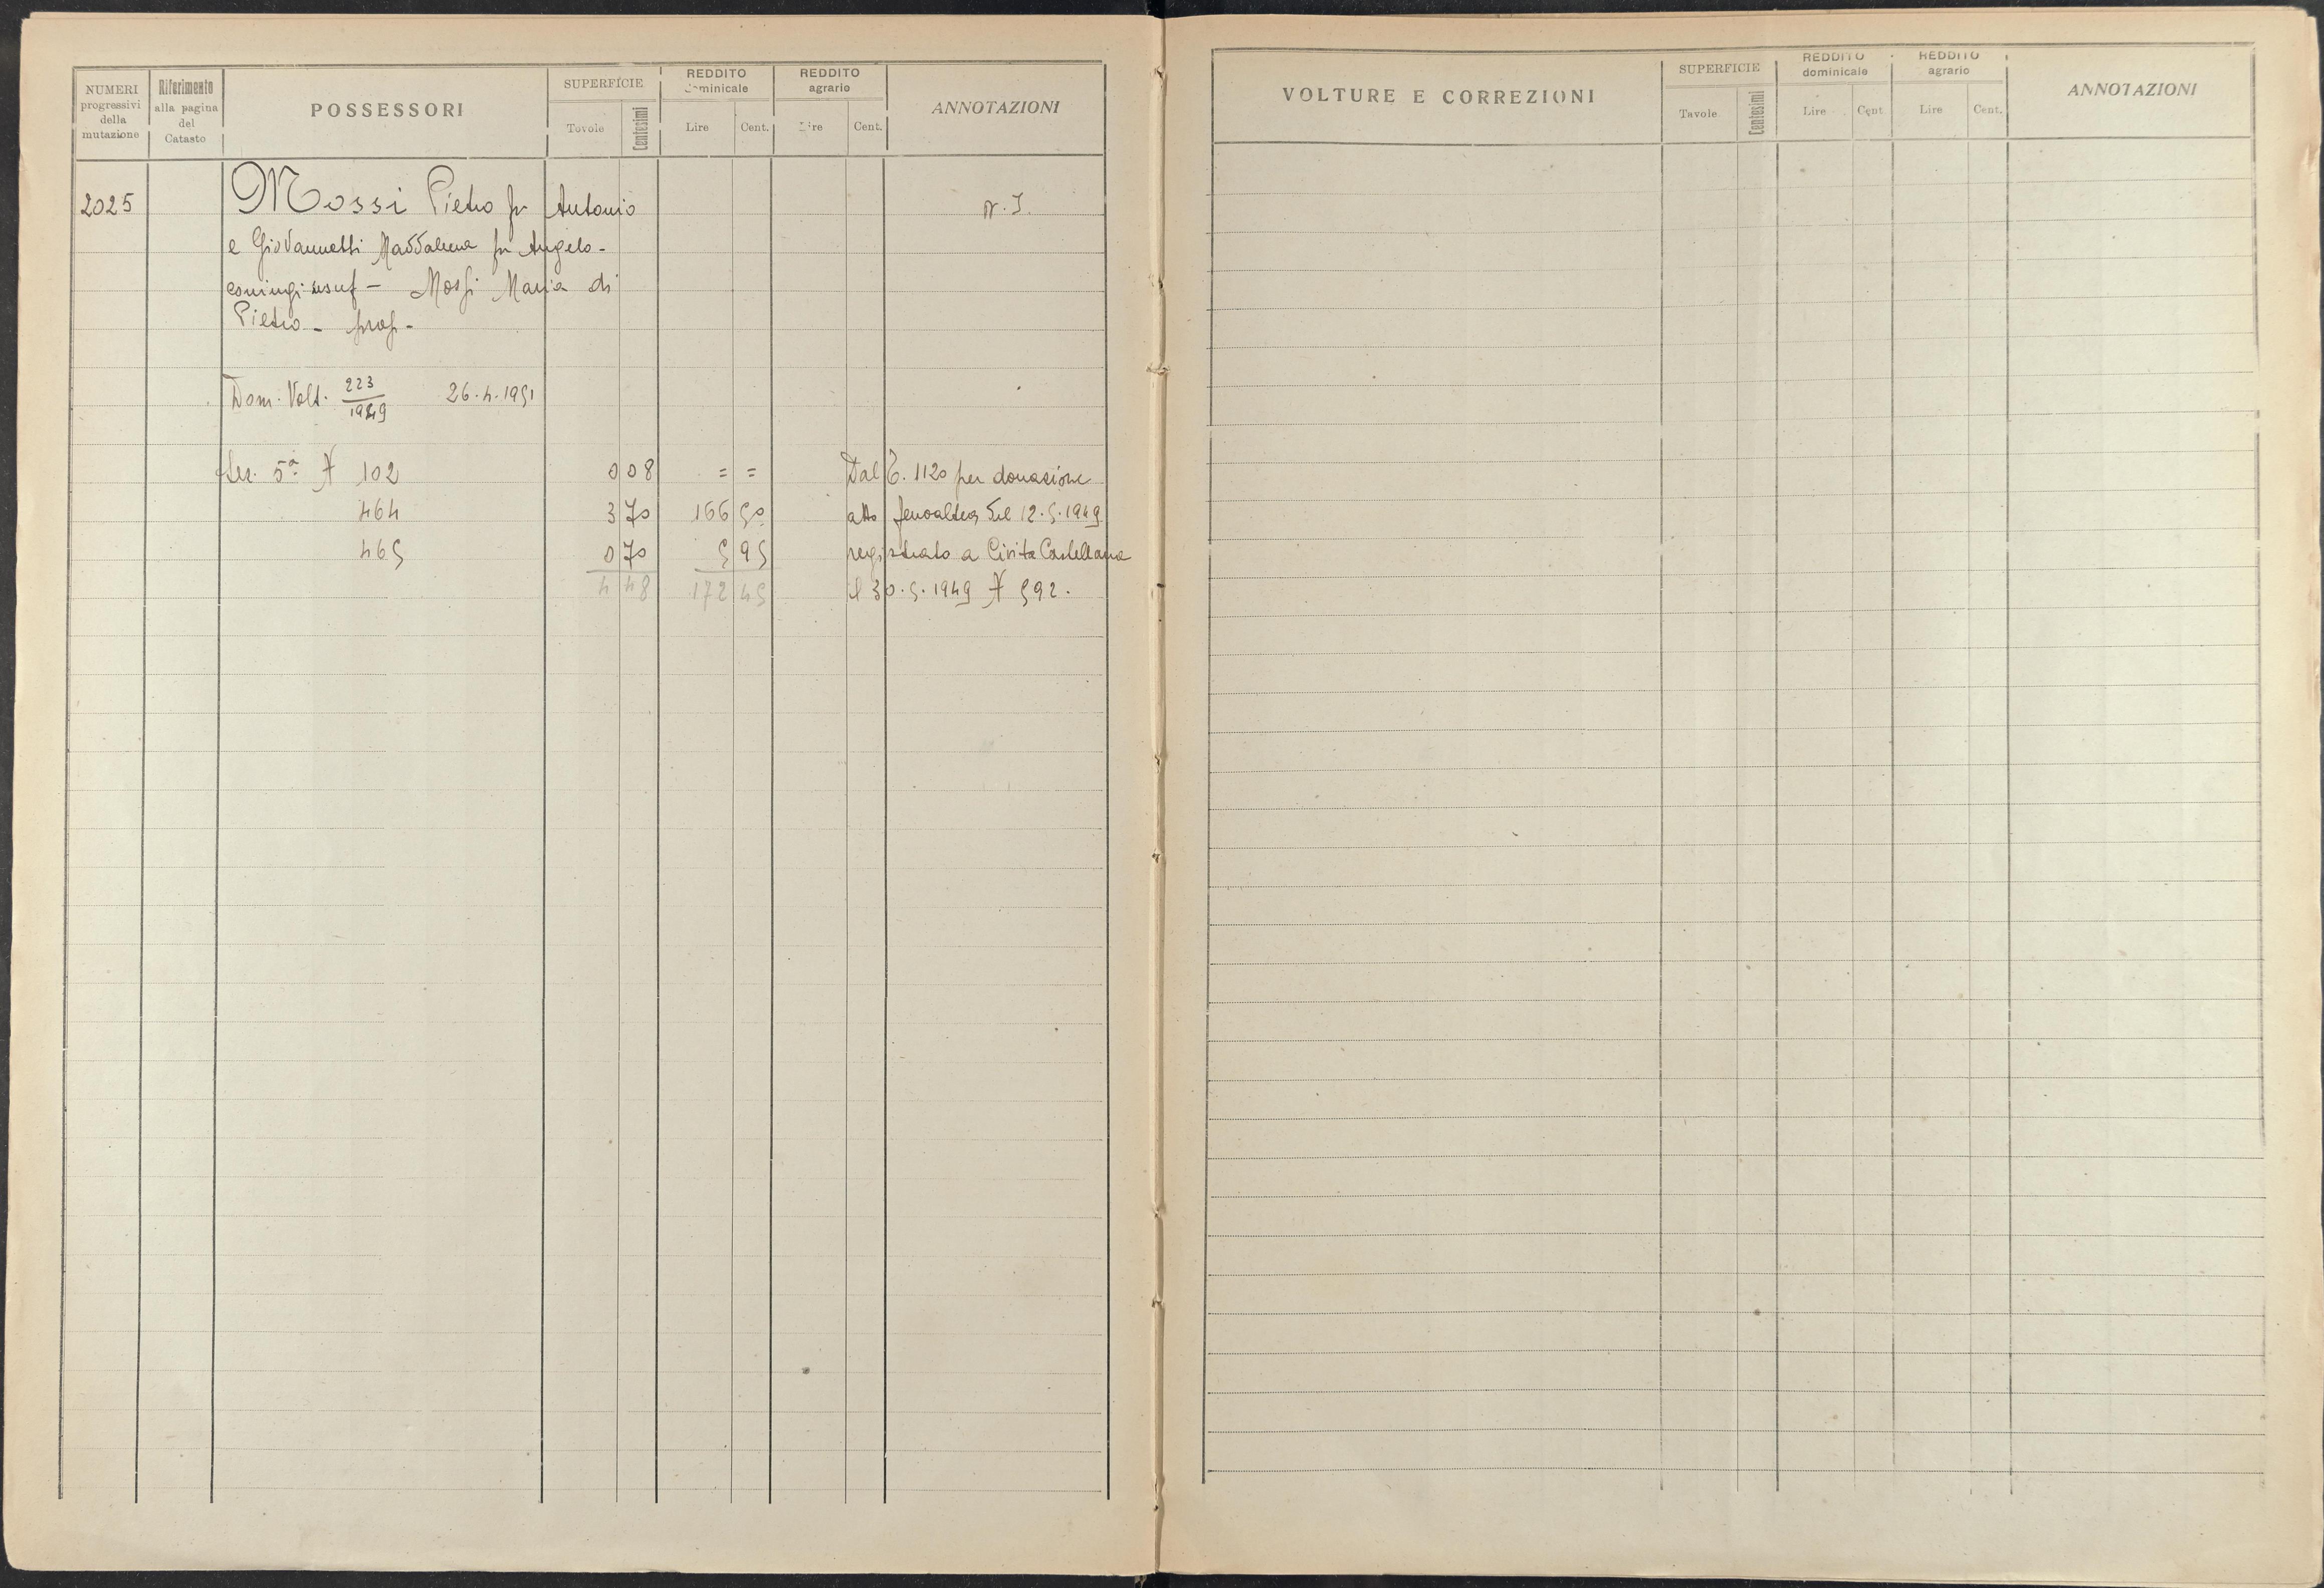 NUMERI progressivi della mutazione
Riferimento alla pagina del Catasto
POSSESSORI
SUPERFÍCIE
Tavole Centesimi
REDDITO dominicale
Lire Cent.
REDDITO agrario
Lire Cent.
ANNOTAZIONI
2025 Mossi Pietro fu Antonio N. I.
e Giovannetti Maddalena fu Angelo -
coniugi usuf - Mossi Maria di
Pietro - prop -
Dom. Volt. 223/1949 26.4.1951
Sez. 5ª N 102 0 08 = = Dal C. 1120 per donazione
464 3 70 166 50 atto Fenoaltea del 12.5.1949
465 0 70 5 95 registrato a Civita Castellana
4 48 172 45 il 30.5.1949 N 592.
VOLTURE E CORREZIONI
SUPERFICIE
Tavole Centesimi
REDDITO dominicale
Lire Cent.
REDDITO agrario
Lire Cent.
ANNOTAZIONI